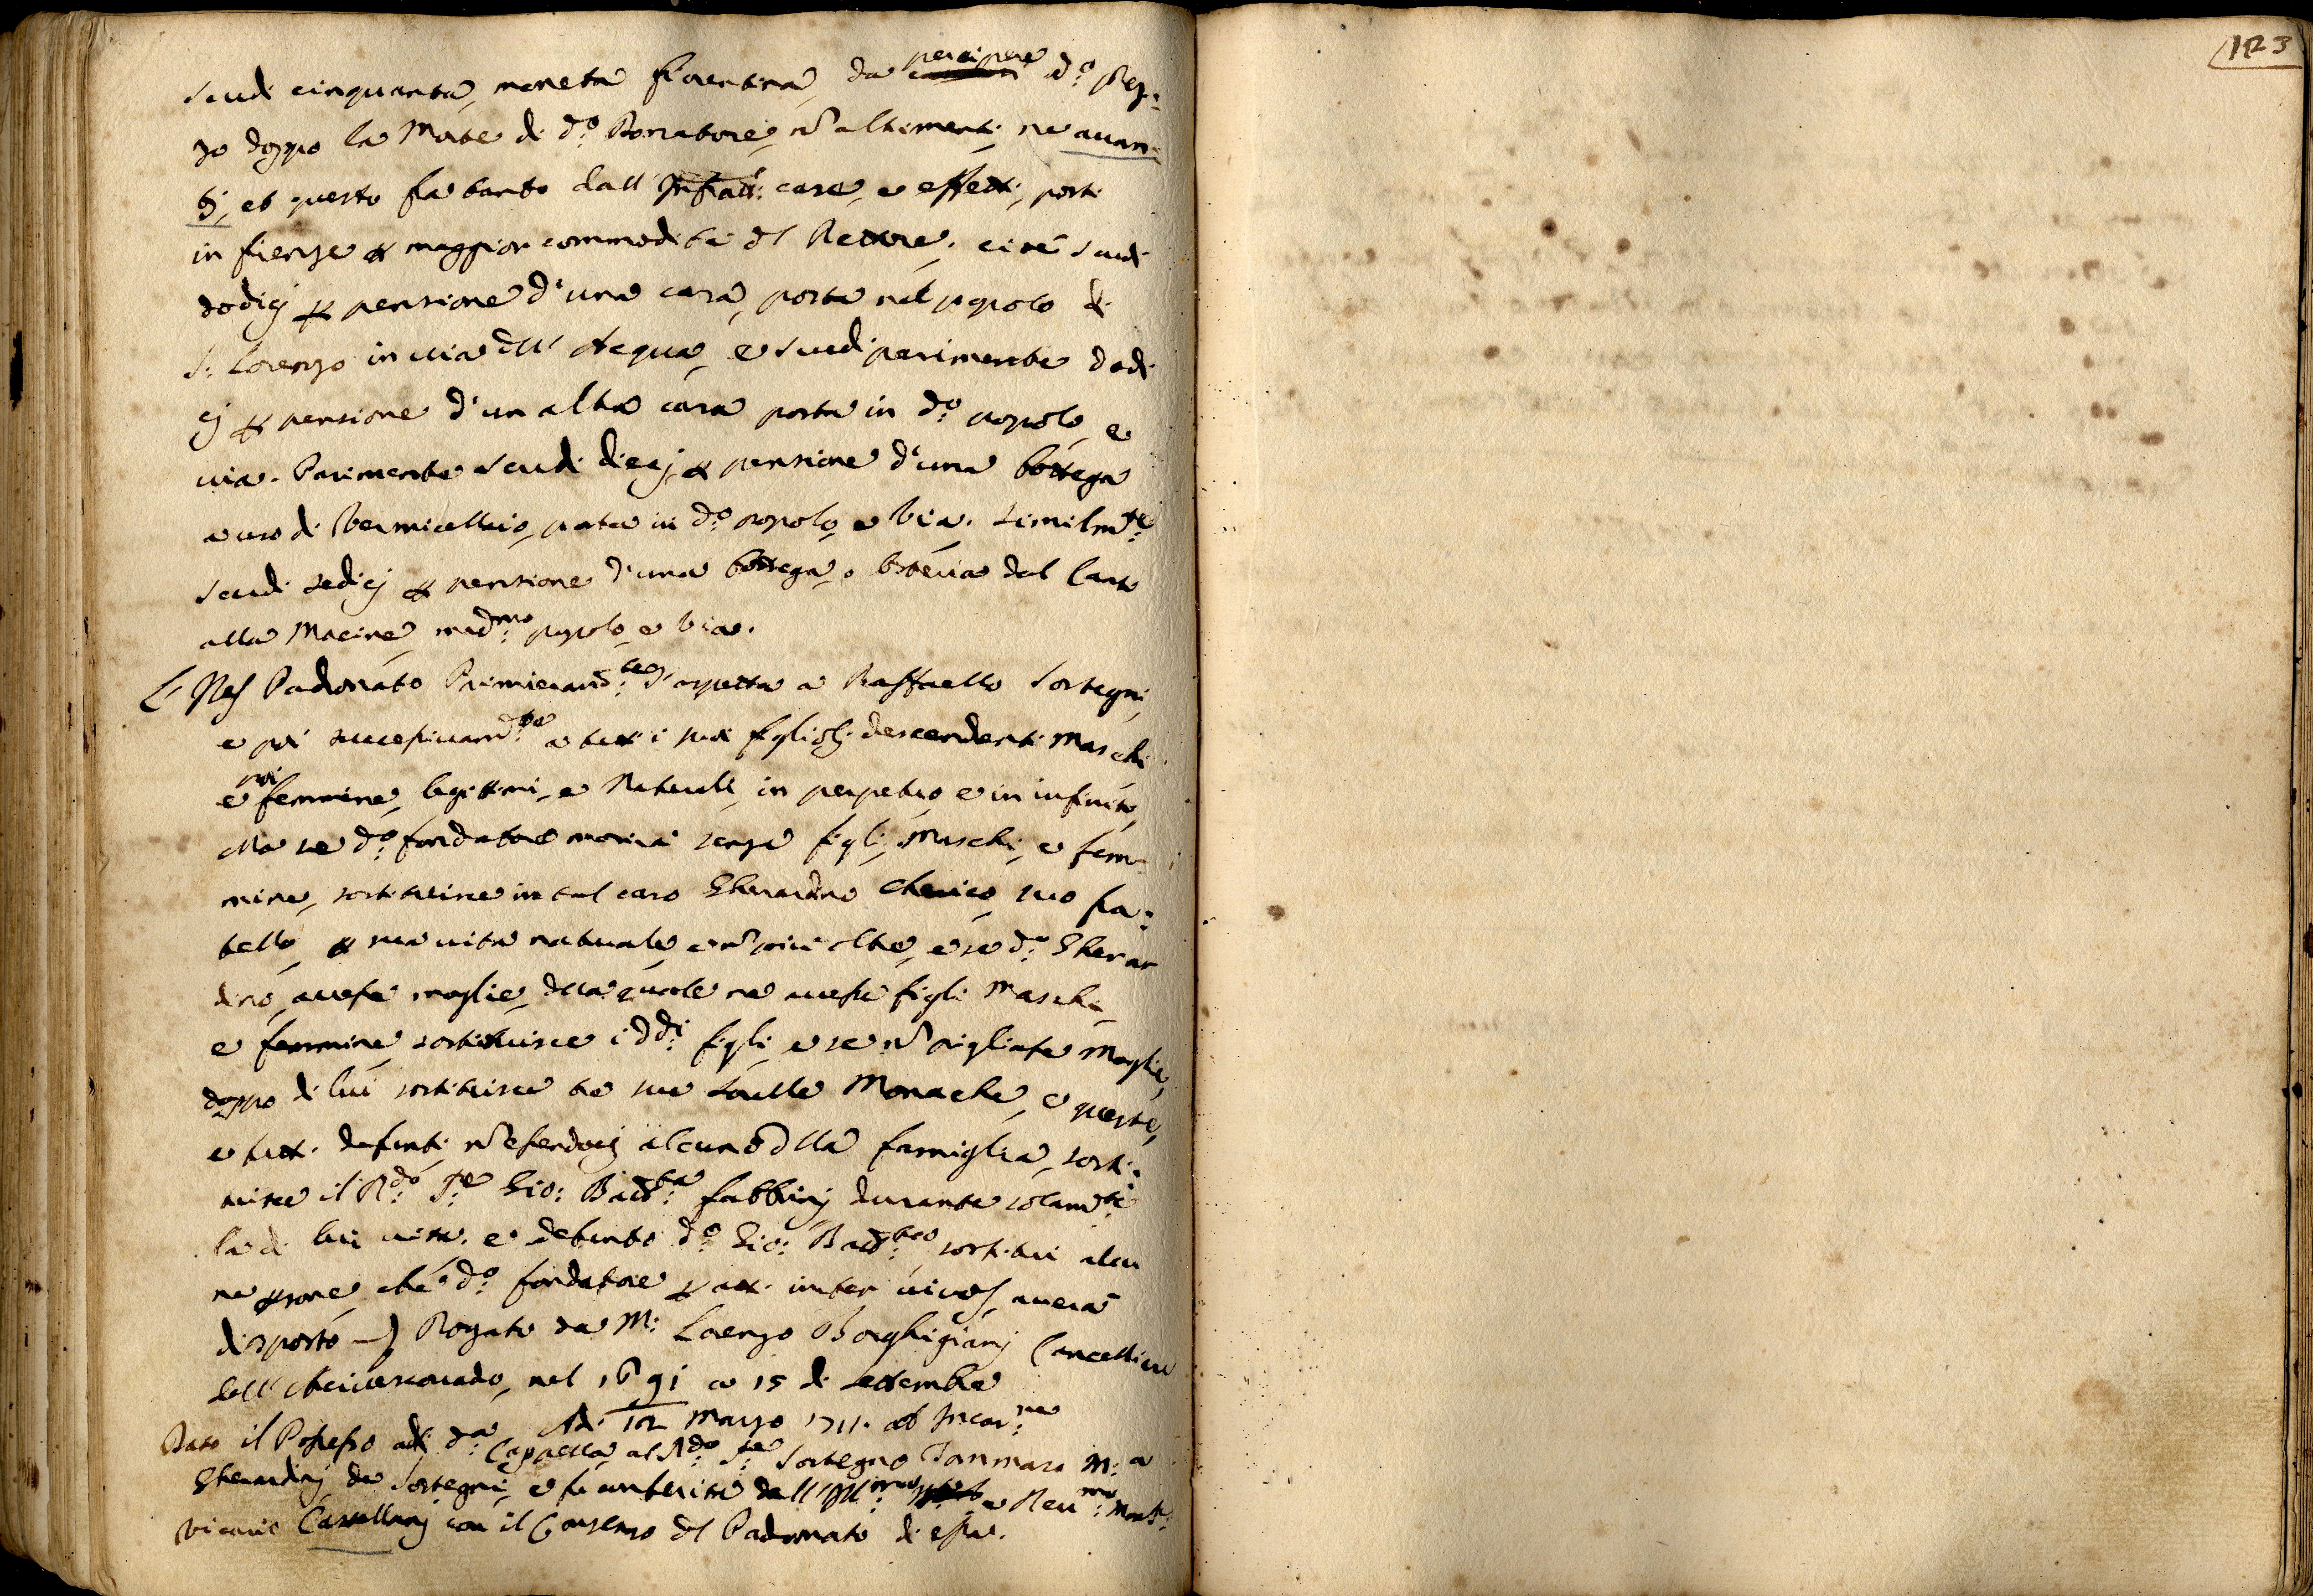 123
Scudi cinquanta, moneta fiorentina, da percipere d:o Prez:
zo doppo la Morte di d:o Donatore, nõ altrimenti, ne auan:
ti, et questo fa tanto dall' Infratte: case, e effetti, posti
in fienze p maggior commodità dl Rettore. cioè Scudi
dodicj p pensione d'una casa, posta nel popolo di
S: Lorenzo in uia dll' Acqua, e Scudi parimente dodi
cj p pensione d'un altra casa posta in d:o popolo, e
uia. Parimente Scudi diecj p pensione d'una bottega
a uso di Vermicellaio, posta in d:o popolo, e Via. similm:te
Scudi sedicj p pensione d'una bottega, o Osteria dal Canto
alla Macine, med:mo popolo, e Via.
L' Nes Padronato Primieram:te s'aspetta a Raffaello Sostegni,
e poi successiuam:te a tutti i suoi figliolj descendenti Maschi
e poi femmine, legittimi, e Naturali, in perpetuo, e in infinito,
Ma se d:o fondatore morirà senza figli, Maschi, e fem
mine, sostituisce in tal caso Gherardino Cherico, suo fra:
tello, p sua uita naturale, e nõ piu oltre, e se d:o Gherar
dino, auesse moglie, dlla quale ne auesse figli Maschi,
e femmine sostituisce i dd:i figli, e se nõ pigliasse Moglie,
doppo di lui sostituisce tre sue Sorelle Monache, e queste,
e tutti defunti, nõ essendocj alcuno dlla famiglia, sosti:
tuisce il R:do P:e Gio: Batt:a fabbrinj durante solam:te
la di lui uita. e defunto d:o Gio: Batt:a sostitui alcu
ne psone, che d:o fondatore p atti inter uiuos, auerà
disposto —) Rogato da M: Lorenzo Borghigianj Cancelliere
dell' Arciuescouado, nel 1691 a 15 di settembre
Adi 12 Marzo 1711. ab Incar:ne
Dato il Possesso di d:a Cappella, al R:do P:e Sostegno Tommaso M: a
Gherardinj da Sostegni, e fu conferita dall' Ill:mo e Reu:mo Mons:
Vicario Castellanj con il Consenso dl Padronato di essa.